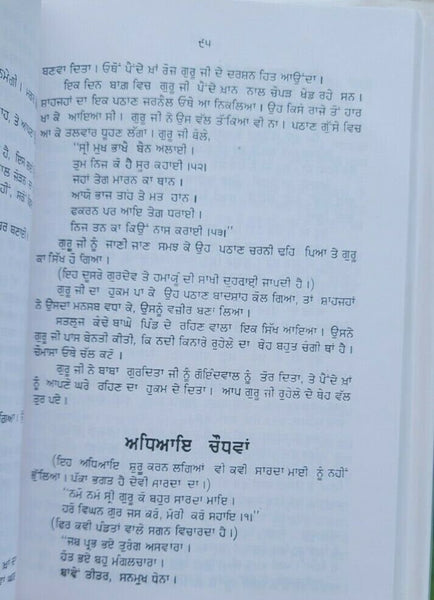 ੯੫
ਬਣਵਾ ਦਿਤਾ। ਓਥੋਂ ਪੈਂਦੇ ਖ਼ਾਂ ਰੋਜ਼ ਗੁਰੂ ਜੀ ਦੇ ਦਰਸ਼ਨ ਹਿਤ ਆਉਂਦਾ।
ਇਕ ਦਿਨ ਬਾਗ਼ ਵਿਚ ਗੁਰੂ ਜੀ ਪੈਂਦੇ ਖ਼ਾਨ ਨਾਲ ਚੌਪੜ ਖੇਡ ਰਹੇ ਸਨ।
ਸ਼ਾਹਜਹਾਂ ਦਾ ਇਕ ਪਠਾਣ ਜਰਨੈਲ ਓਥੇ ਆ ਨਿਕਲਿਆ। ਉਹ ਕਿਸੇ ਰਾਜੇ ਤੋਂ ਹਾਰ
ਖਾ ਕੇ ਆਇਆ ਸੀ। ਗੁਰੂ ਜੀ ਨੇ ਉਸ ਵੱਲ ਤੱਕਿਆ ਵੀ ਨਾ। ਪਠਾਣ ਗੁੱਸੇ ਵਿਚ
ਆ ਕੇ ਤਲਵਾਰ ਧੂਹਣ ਲੱਗਾ। ਗੁਰੂ ਜੀ ਬੋਲੇ,
"ਸ੍ਰੀ ਮੁਖ ਭਾਖੈ ਬੈਨ ਅਲਾਈ।
ਤੁਮ ਨਿਜ ਕੋ ਹੈ ਸੂਰ ਕਹਾਈ।੫੨।
ਜਹਾਂ ਤੇਗ ਮਾਰਨ ਕਾ ਥਾਨ।
ਆਯੋ ਭਾਜ ਤਾਹ ਤੇ ਮਤ ਹਾਨ।
ਫਕਰਨ ਪਰ ਆਇ ਤੇਗ ਧਰਾਈ।
ਨਿਜ ਤਨ ਕਾ ਕਿਉਂ ਨਾਸ ਕਰਾਈ।੫੩।"
ਗੁਰੂ ਜੀ ਨੂੰ ਜਾਣੀ ਜਾਣ ਸਮਝ ਕੇ ਉਹ ਪਠਾਣ ਚਰਨੀ ਢਹਿ ਪਿਆ ਤੇ ਗੁਰੂ
ਕਾ ਸਿੱਖ ਹੋ ਗਿਆ।
(ਇਹ ਦੂਸਰੇ ਗੁਰਦੇਵ ਤੇ ਹਮਾਯੂੰ ਦੀ ਸਾਖੀ ਦੁਹਰਾਈ ਜਾਪਦੀ ਹੈ।)
ਗੁਰੂ ਜੀ ਦਾ ਹੁਕਮ ਪਾ ਕੇ ਉਹ ਪਠਾਣ ਬਾਦਸ਼ਾਹ ਕੋਲ ਗਿਆ, ਤਾਂ ਸ਼ਾਹਜਹਾਂ
ਨੇ ਉਸਦਾ ਮਨਸਬ ਵਧਾ ਕੇ, ਉਸਨੂੰ ਵਜ਼ੀਰ ਬਣਾ ਲਿਆ।
ਸਤਲੁਜ ਕੰਢੇ ਬਾਘੇ ਪਿੰਡ ਦੇ ਰਹਿਣ ਵਾਲਾ ਇਕ ਸਿਖ ਆਇਆ। ਉਸਨੇ
ਗੁਰੂ ਜੀ ਪਾਸ ਬੇਨਤੀ ਕੀਤੀ, ਕਿ ਨਦੀ ਕਿਨਾਰੇ ਰੁਹੇਲੇ ਦਾ ਥੇਹ ਬਹੁਤ ਚੰਗੀ ਥਾਂ ਹੈ।
ਚੌਮਾਸਾ ਓਥੇ ਚੱਲ ਕਟੋ।
ਗੁਰੂ ਜੀ ਨੇ ਬਾਬਾ ਗੁਰਦਿਤਾ ਜੀ ਨੂੰ ਗੋਇੰਦਵਾਲ ਨੂੰ ਤੋਰ ਦਿਤਾ, ਤੇ ਪੈਂਦੇ ਖ਼ਾਂ
ਨੂੰ ਆਪਣੇ ਘਰੇ ਰਹਿਣ ਦਾ ਹੁਕਮ ਦੇ ਦਿਤਾ। ਆਪ ਗੁਰੂ ਜੀ ਰੁਹੇਲੇ ਦੇ ਥੇਹ ਵੱਲ
ਤੁਰ ਪਏ।
ਅਧਿਆਇ ਚੌਧਵਾਂ
(ਇਹ ਅਧਿਆਇ ਸ਼ੁਰੂ ਕਰਨ ਲਗਿਆਂ ਵੀ ਕਵੀ ਸਾਰਦਾ ਮਾਈ ਨੂੰ ਨਹੀਂ
ਭੁੱਲਿਆ। ਪੱਕਾ ਭਗਤ ਹੈ ਦੇਵੀ ਸਾਰਦਾ ਦਾ।)
"ਨਮੋ ਨਮੋ ਸ੍ਰੀ ਗੁਰੂ ਕੋ ਬਹੁਰ ਸਾਰਦਾ ਮਾਇ।
ਹਰੋ ਵਿਘਨ ਗੁਰ ਜਸ ਕਰੋ, ਮੋਰੀ ਕਰੋ ਸਹਾਇ।੧।"
(ਫਿਰ ਕਵੀ ਪੰਡਤਾਂ ਵਾਲੇ ਸਗਨ ਵਿਚਾਰਦਾ ਹੈ।)
"ਜਬ ਪ੍ਰਭ ਭਏ ਤੁਰੰਗ ਅਸਵਾਰਾ।
ਹੋਤ ਭਏ ਬਹੁ ਮੰਗਲਚਾਰਾ।
ਬਾਵੇਂ ਤੀਤਰ, ਸਨਮੁਖ ਧੇਨਾ।